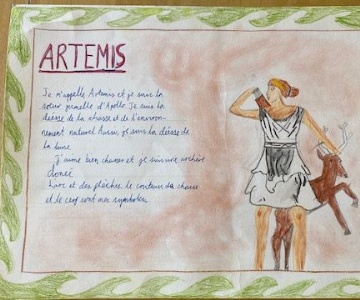 ARTEMIS
Je m'appelle Artemis et je suis la
sœur jumelle d'Apollo. Je suis la
déesse de la chasse et de l'environ-
nement naturel. Aussi, je suis la déesse de
la lune.
J'aime bien chasser et je suis une archère
douée
L'arc et des flèches, le couteau de chasse
et le cerf sont mes symboles.